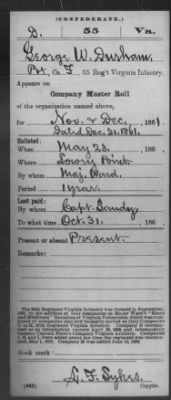 (CONFEDERATE.)
D. 55 Va.
George W. Durham
Pvt, Co. F, 55 Reg't Virginia Infantry.
Appears on
Company Muster Roll
of the organization named above,
for Nov. & Dec., 1861.
Dated Dec. 31, 1861.
Enlisted:
When May 23, 186
Where Lowry Point
By whom Maj. Ward.
Period 1 year.
Last paid:
By whom Capt. Saudy.
To what time Oct. 31, 186
Present or absent Present.
Remarks:
Book mark:
L. T. Sykes.
Copyist.